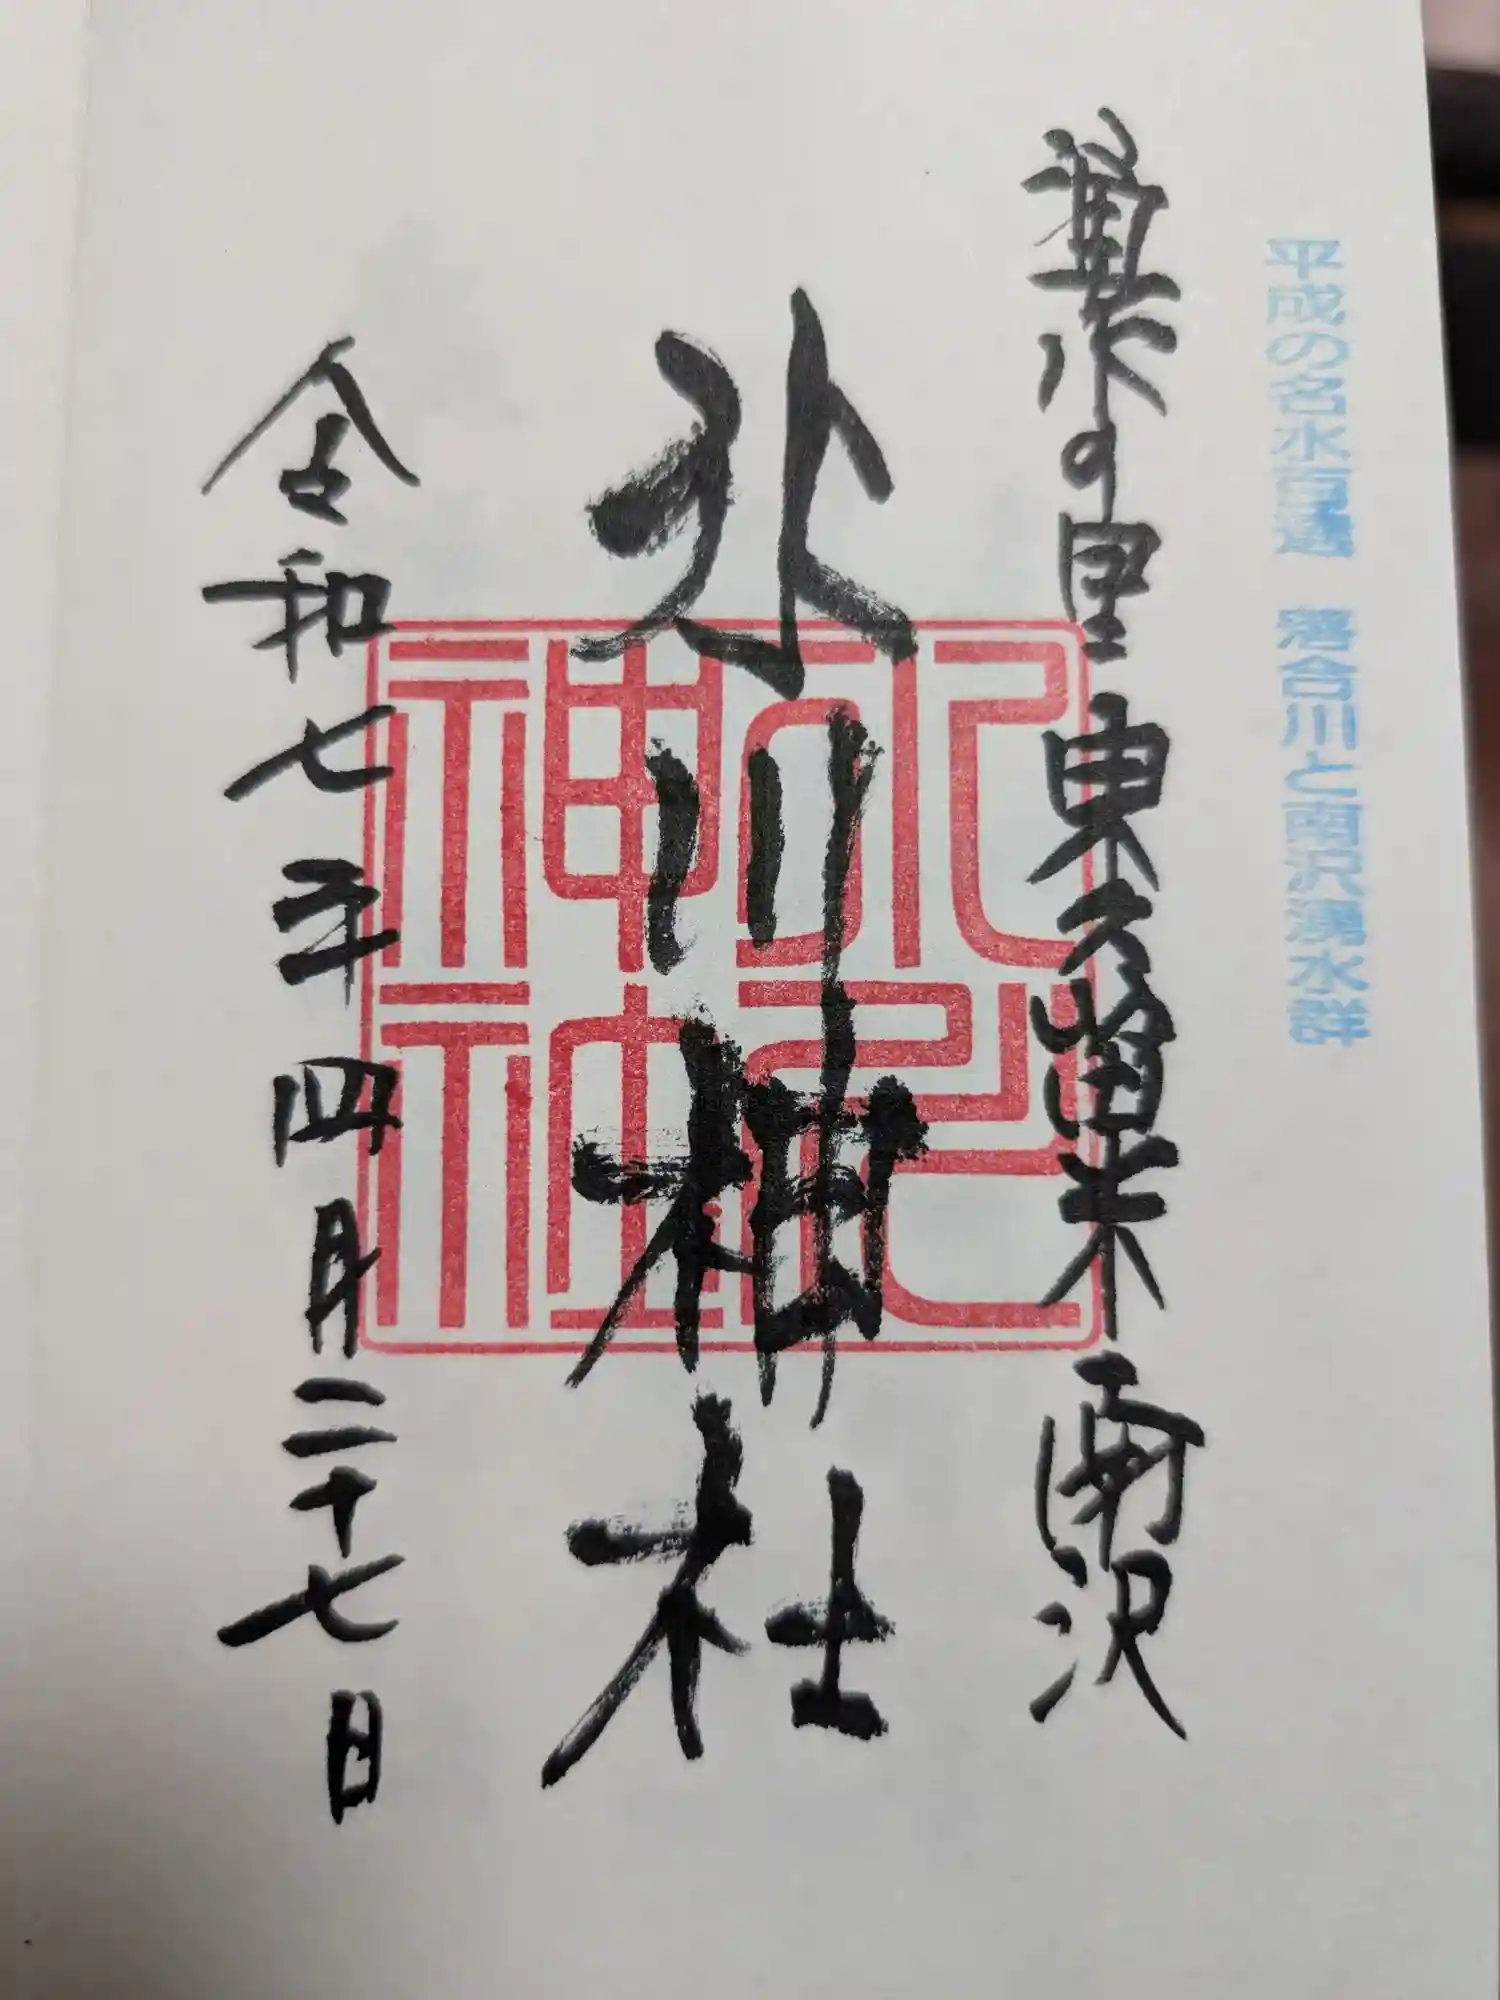 平成の名水百選　落合川と南沢湧水群
湧水の里 東久留米 南沢
氷川神社
令和七年四月二十七日